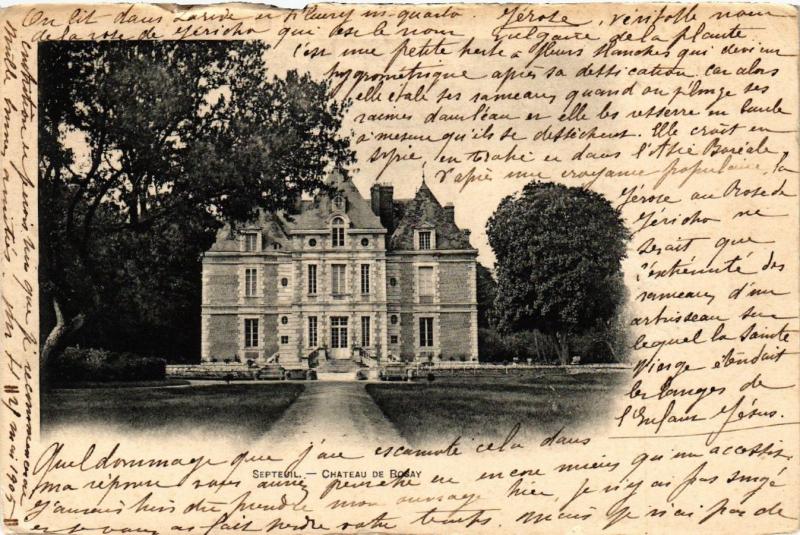 On lit dans Larive et Fleury in-quarto Jérose, véritable nom
de la rose de Jéricho qui est le nom vulgaire de la plante.
C'est une petite herbe à fleurs blanches qui devient
hygrométrique après sa dessication car alors
elle étale ses rameaux quand on plonge ses
racines dans l'eau et elle les resserre en boule
à mesure qu'ils se dessèchent. Elle croît en
Syrie, en Arabie et dans l'Asie Boréale,
d'après une croyance populaire, la
Jérose ou Rose de
Jéricho ne
serait que
l'extrémité des
rameaux d'un
arbrisseau sur
lequel la Sainte
Vierge étendait
les langes de
l'Enfant Jésus.
SEPTEUIL. — CHATEAU DE ROSAY
Quel dommage que j'aie escamoté cela dans
ma réponse vous auriez peut-être eu encore mieux qu'un accessit.
J'aurais dû prendre mon ouvrage hier, je n'y ai pas songé
et je vous ai fait perdre votre temps. Mais je n'ai pas de
contrition
Mille bonnes amitiés
21 mai 1905